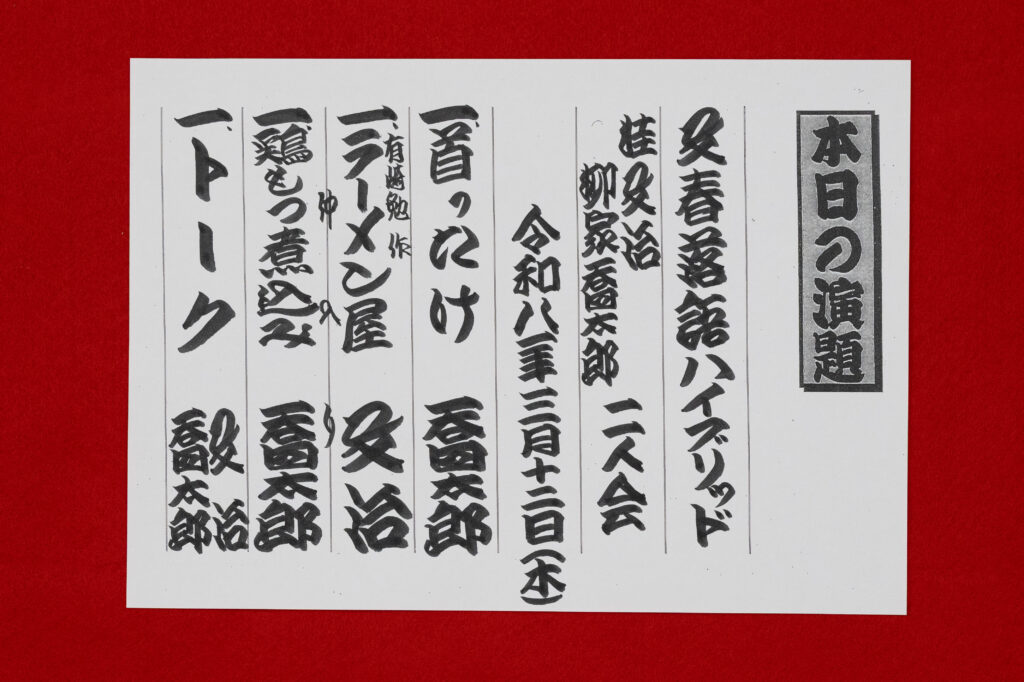 本日の演題
文春落語ハイブリッド
桂文治
柳家喬太郎
二人会
令和八年三月十二日(木)
一、首ったけ 喬太郎
有崎勉 作
一、ラーメン屋 文治
仲入り
一、鶏もつ煮込み 喬太郎
一、トーク 文治
喬太郎